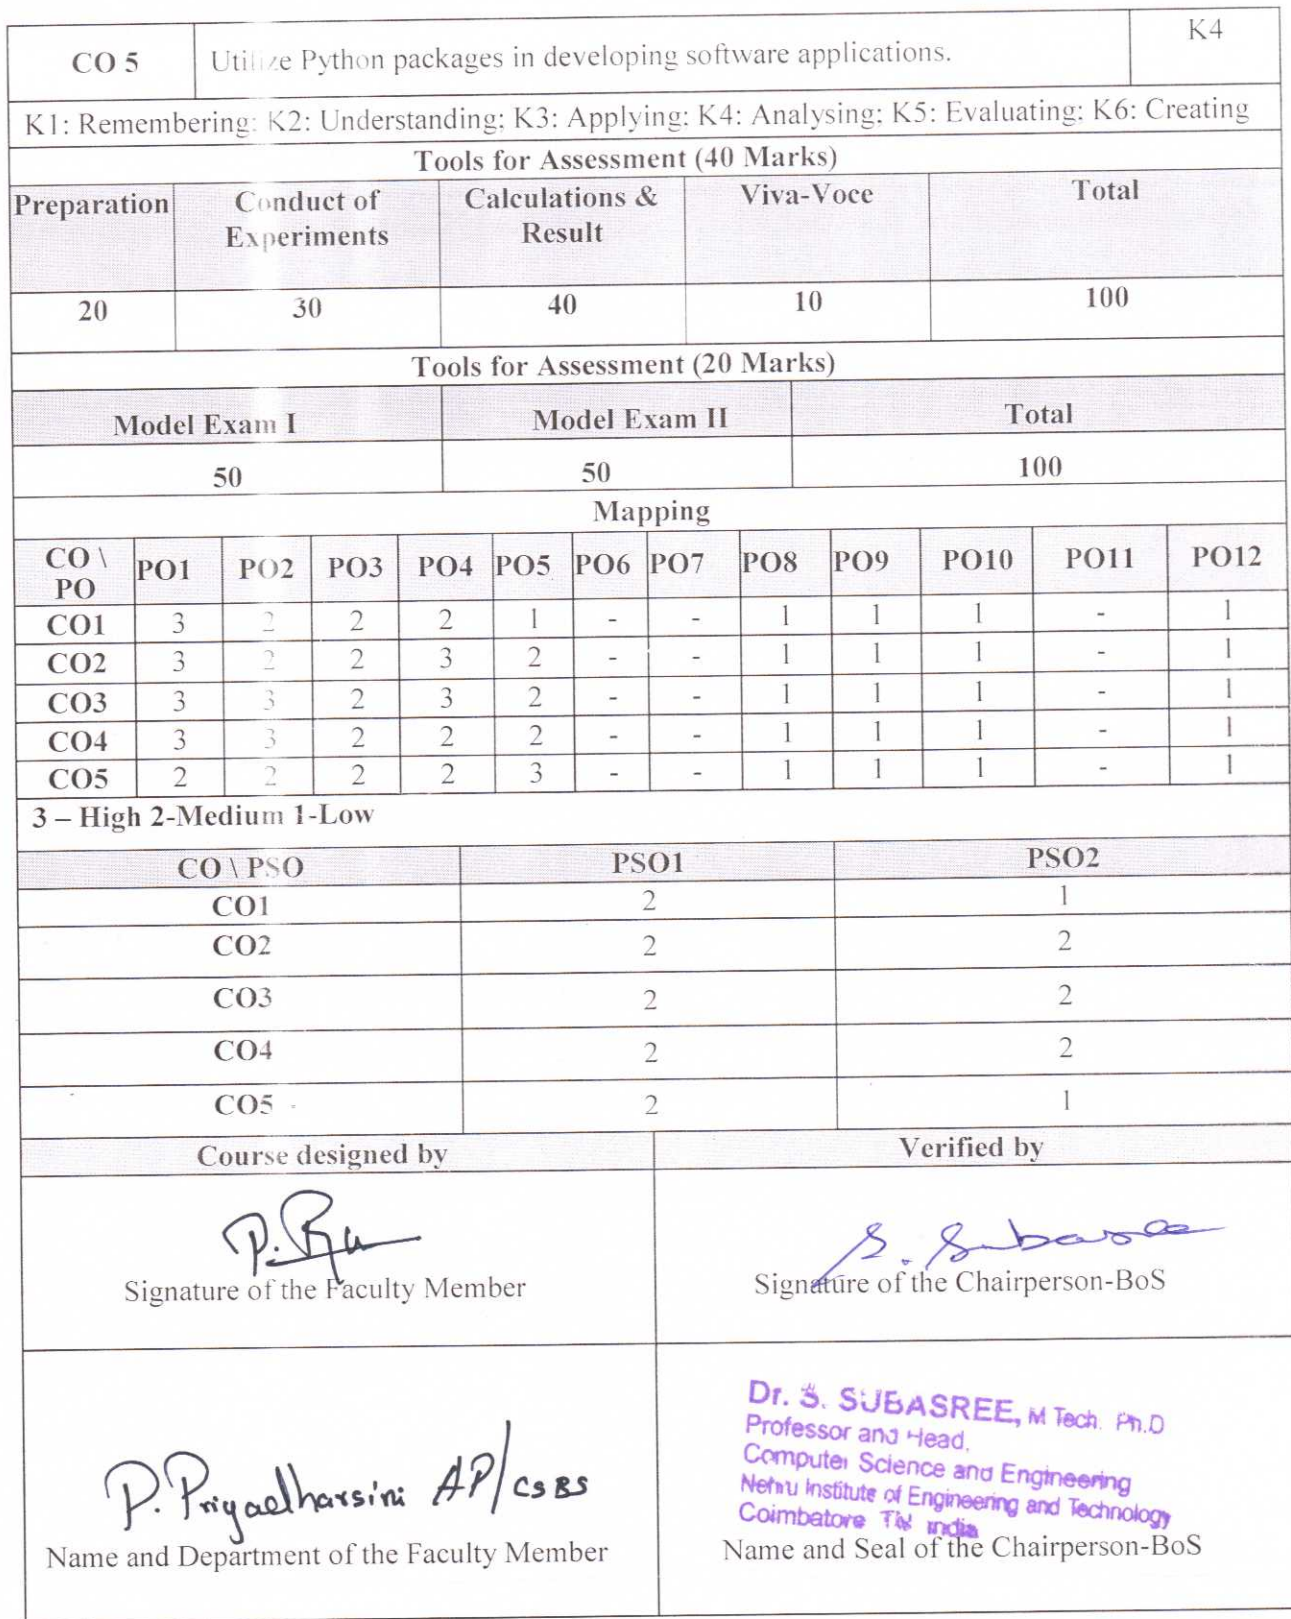 CO 5 Utilize Python packages in developing software applications. K4
K1: Remembering; K2: Understanding; K3: Applying; K4: Analysing; K5: Evaluating; K6: Creating
Tools for Assessment (40 Marks)
Preparation Conduct of Experiments Calculations & Result Viva-Voce Total
20 30 40 10 100
Tools for Assessment (20 Marks)
Model Exam I Model Exam II Total
50 50 100
Mapping
CO \ PO PO1 PO2 PO3 PO4 PO5 PO6 PO7 PO8 PO9 PO10 PO11 PO12
CO1 3 2 2 2 1 - - 1 1 1 - 1
CO2 3 2 2 3 2 - - 1 1 1 - 1
CO3 3 3 2 3 2 - - 1 1 1 - 1
CO4 3 3 2 2 2 - - 1 1 1 - 1
CO5 2 2 2 2 3 - - 1 1 1 - 1
3 – High 2-Medium 1-Low
CO \ PSO PSO1 PSO2
CO1 2 1
CO2 2 2
CO3 2 2
CO4 2 2
CO5 2 1
Course designed by Verified by
S. Subasree
Signature of the Faculty Member Signature of the Chairperson-BoS
P. Priyadharsini AP/CSBS
Name and Department of the Faculty Member
Dr. S. SUBASREE, M Tech. Ph.D
Professor and Head,
Computer Science and Engineering
Nehru Institute of Engineering and Technology
Coimbatore TN India
Name and Seal of the Chairperson-BoS